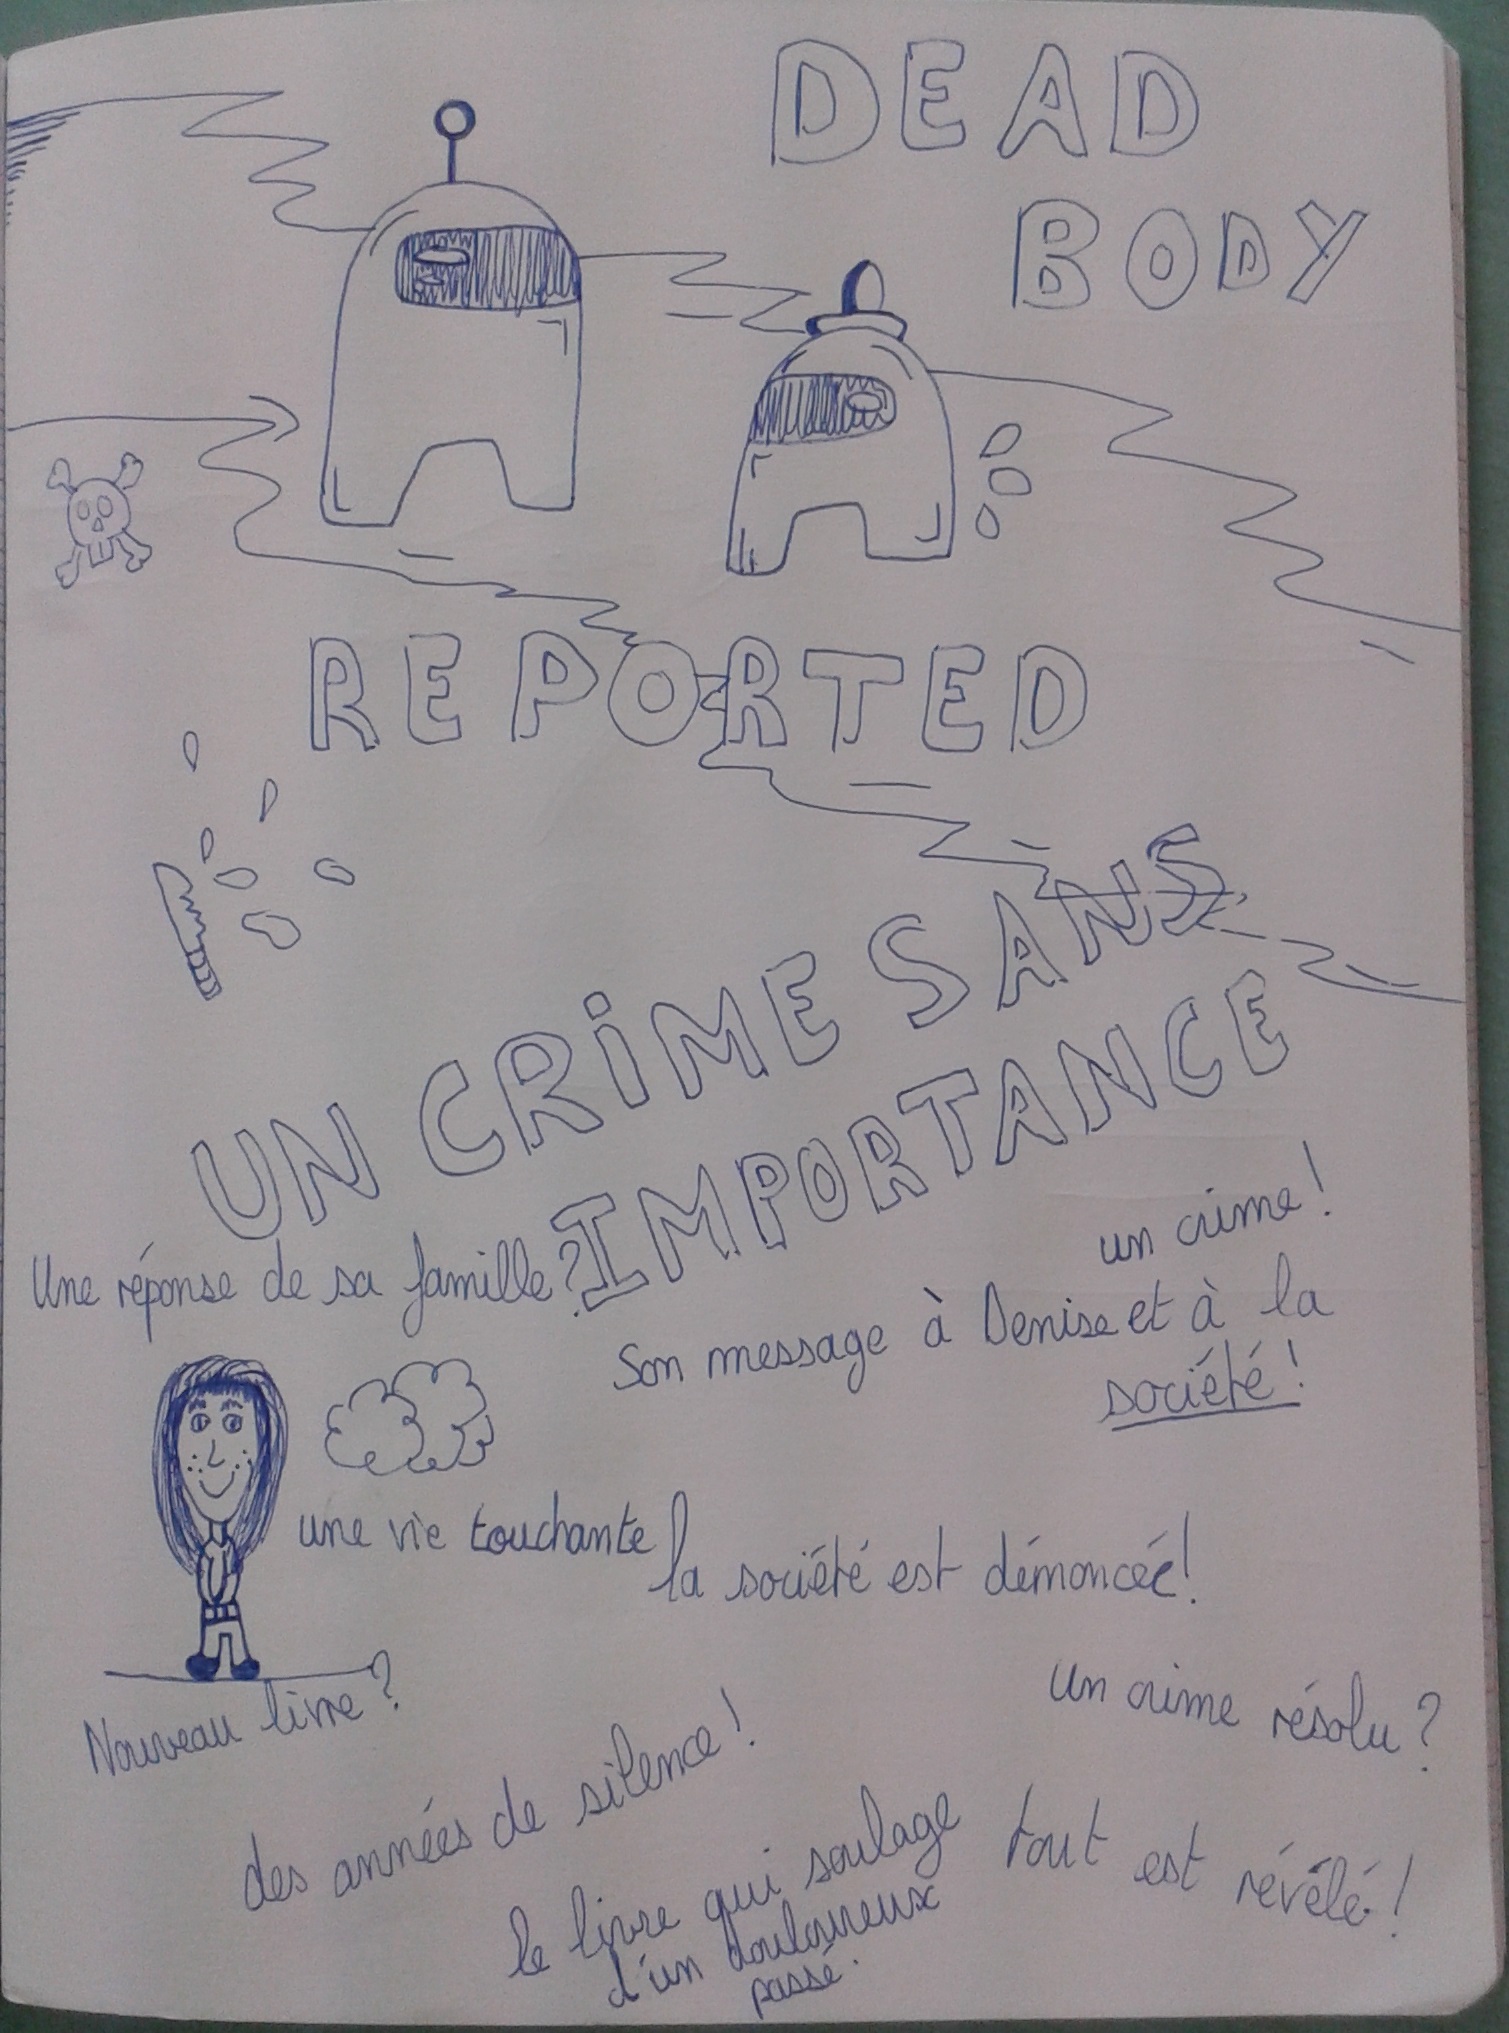 DEAD
BODY
REPORTED
UN CRIME SANS
IMPORTANCE
un crime!
Une réponse de sa famille?
Son message à Denise et à la
société!
une vie touchante
la société est démoncée!
Nouveau livre?
un crime résolu?
des années de silence!
tout est révélé!
le livre qui soulage
d'un douloureux
passé.